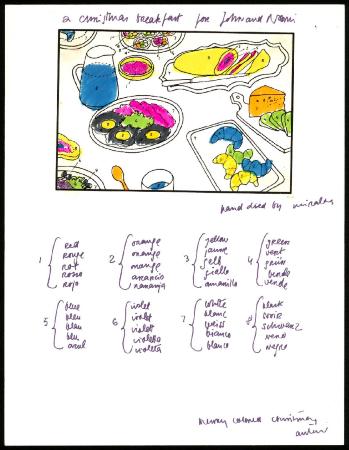 a christmas breakfast for John and Naomi
hand dyed by
1 { red
rouge
rot
rosso
rojo
2 { orange
orange
orange
arancio
naranja
3 { yellow
jaune
gelb
giallo
amarillo
4 { green
vert
grün
verde
verde
5 { blue
bleu
blau
blu
azul
6 { violet
violet
violett
violetto
violeta
7 { white
blanc
weiss
bianco
blanco
8 { black
schwarz
nero
negro
merry colored christmas